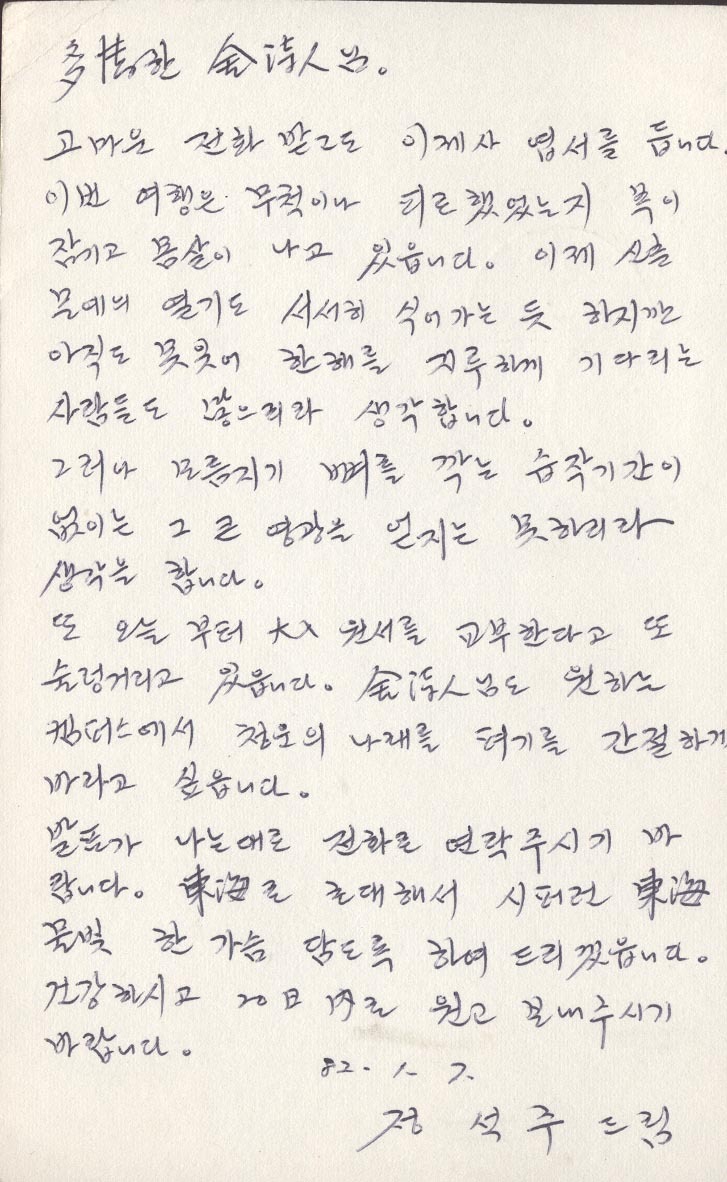 多情한 金詩人님.
고마운 전화 받고도 이제사 엽서를 듭니다.
이번 여행은 무척이나 피로했었는지 목이
잠기고 몸살이 나고 있읍니다. 이제 신춘
문예의 열기도 서서히 식어가는 듯 하지만
아직도 못잊어 한해를 지루하게 기다리는
사람들도 많으리라 생각합니다.
그러나 모름지기 뼈를 깍는 습작기간이
없이는 그 큰 영광을 얻지는 못하리라
생각을 합니다.
또 오늘 부터 大入 원서를 교부한다고 또
술렁거리고 있읍니다. 金詩人님도 원하는
캠퍼스에서 청운의 나래를 펴기를 간절하게
바라고 싶읍니다.
발표가 나는대로 전화로 연락주시기 바
랍니다. 東海로 초대해서 시퍼런 東海
물빛 한 가슴 담도록 하여 드리겠읍니다.
건강하시고 20日 內로 원고 보내주시기
바랍니다.
82. 1. 7.
정 석 주 드림